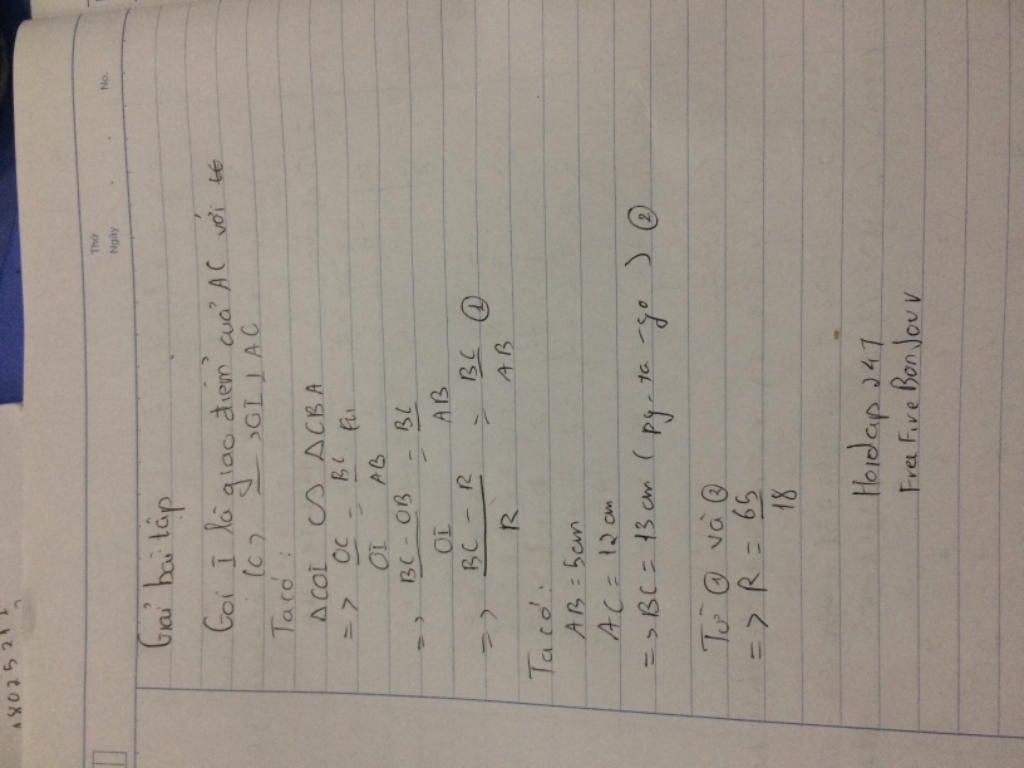 Thứ
Ngày
No.
Giải bài tập
Gọi I là giao điểm của AC với
(C) => OI ⊥ AC
Ta có:
ΔCOI ∽ ΔCBA
=> OC/OI = BC/AB
=> (BC - OB)/OI = BC/AB
=> (BC - R)/R = BC/AB ①
Ta có:
AB = 5cm
AC = 12cm
=> BC = 13cm (py-ta-go) ②
Từ ① và ②
=> R = 65/18
Hoidap247
Free Five BonJouv